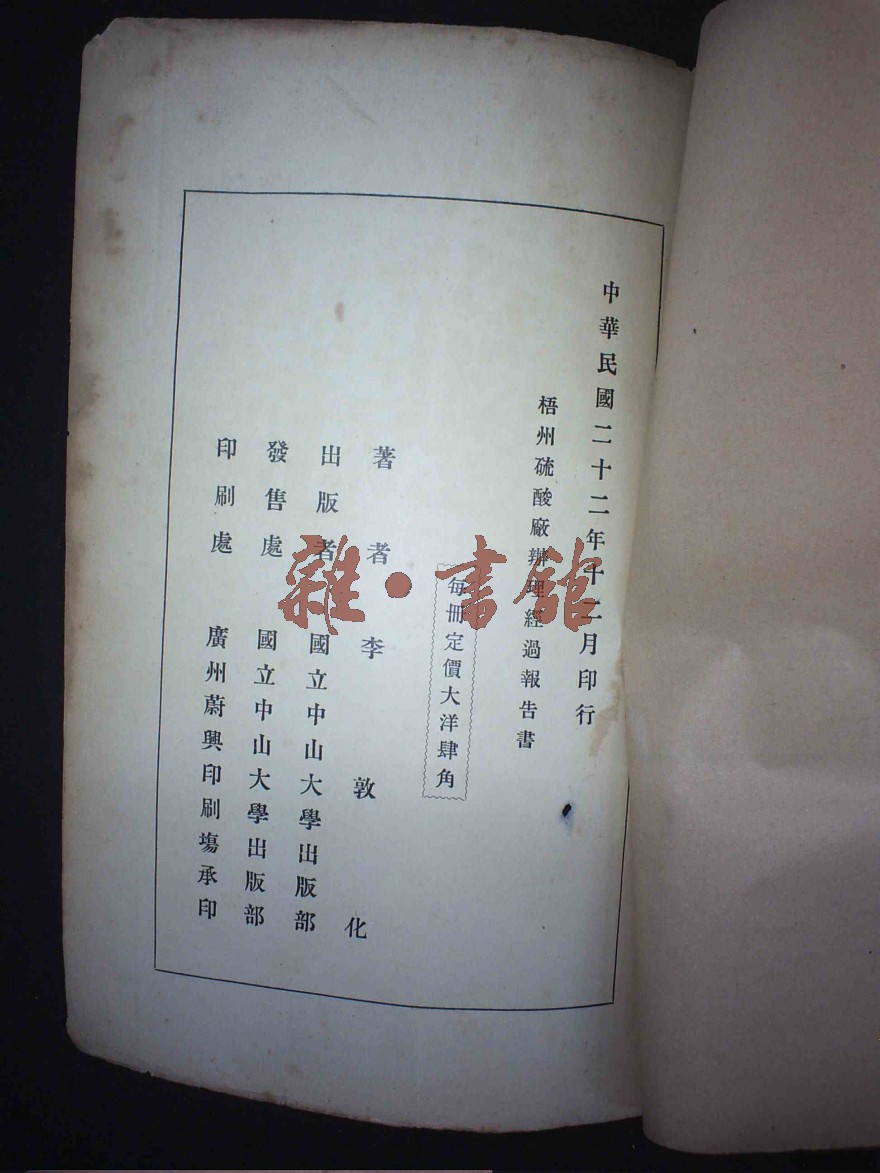 中華民國二十二年十二月印行
梧州硫酸廠辦理經過報告書
每冊定價大洋肆角
著者 李敦化
出版者 國立中山大學出版部
發售處 國立中山大學出版部
印刷處 廣州蔚興印刷塲承印
雜·書館